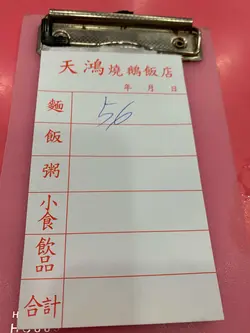 天鴻燒鵝飯店
年 月 日
麵 56
飯
粥
小食
飲品
合計